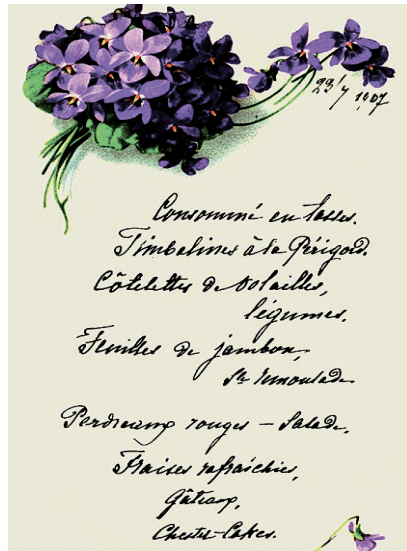 23/7 1907
Consommé en tasses.
Timbalines à la Périgord.
Côtelettes de Volailles,
légumes.
Feuilles de jambon,
Sce remoulade
Perdreaux rouges – Salade.
Fraises rafraîchies,
Gâteaux,
Chester-Cakes.